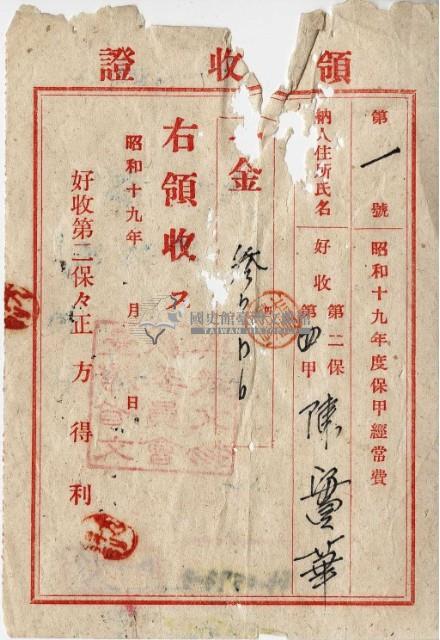 領收證
第一號 昭和十九年度保甲經常費
納入住所氏名 好收第二保第四甲 陳
一金
右領收ス
昭和十九年 月 日
好收第二保々正 方得利
國史館臺灣文獻館
TAIWAN HISTORICA